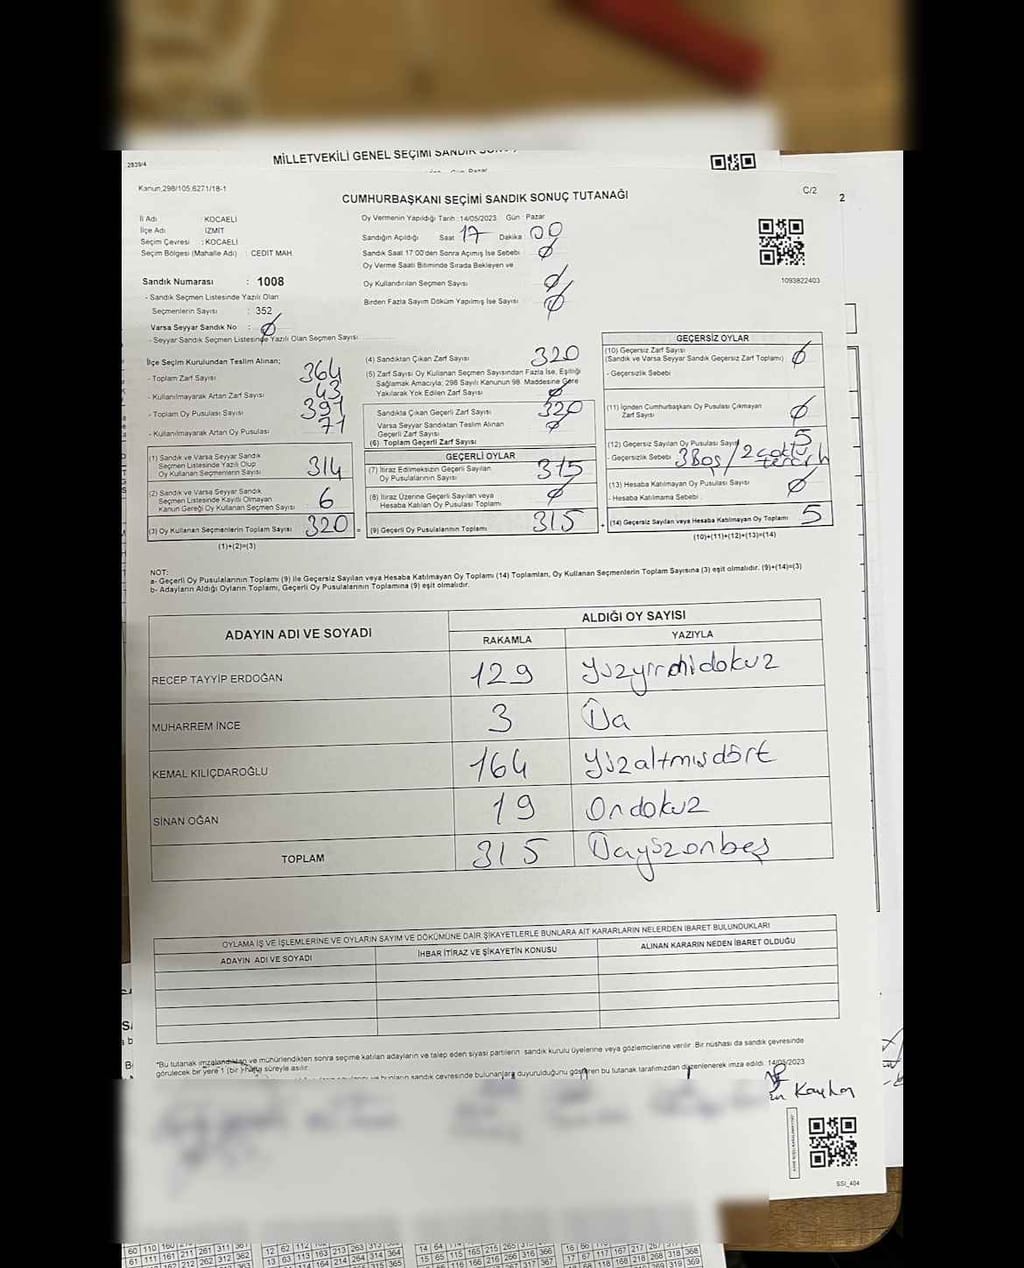 2839/4
MİLLETVEKİLİ GENEL SEÇİMİ SANDIK
Kanun,298/105,6271/18-1
C/2
2
CUMHURBAŞKANI SEÇİMİ SANDIK SONUÇ TUTANAĞI
İl Adı KOCAELİ
İlçe Adı İZMİT
Seçim Çevresi : KOCAELİ
Seçim Bölgesi (Mahalle Adı) : CEDİT MAH
Oy Vermenin Yapıldığı Tarih :14/05/2023 Gün : Pazar
Sandığın Açıldığı Saat 17 Dakika 00
Sandık Saat 17:00'den Sonra Açımış İse Sebebi Ø
Oy Verme Saati Bitiminde Sırada Bekleyen ve
Oy Kullandırılan Seçmen Sayısı Ø
Birden Fazla Sayım Döküm Yapılmış İse Sayısı Ø
1093822403
Sandık Numarası : 1008
- Sandık Seçmen Listesinde Yazılı Olan
Seçmenlerin Sayısı : 352
Varsa Seyyar Sandık No : Ø
- Seyyar Sandık Seçmen Listesinde Yazılı Olan Seçmen Sayısı
İlçe Seçim Kurulundan Teslim Alınan;
- Toplam Zarf Sayısı 364
- Kullanılmayarak Artan Zarf Sayısı 43
- Toplam Oy Pusulası Sayısı 391
- Kullanılmayarak Artan Oy Pusulası 71
(1) Sandık ve Varsa Seyyar Sandık
Seçmen Listesinde Yazılı Olup
Oy Kullanan Seçmenlerin Sayısı 314
(2) Sandık ve Varsa Seyyar Sandık
Seçmen Listesinde Kayıtlı Olmayan
Kanun Gereği Oy Kullanan Seçmen Sayısı 6
(3) Oy Kullanan Seçmenlerin Toplam Sayısı 320
(1)+(2)=(3)
(4) Sandıktan Çıkan Zarf Sayısı 320
(5) Zarf Sayısı Oy Kullanan Seçmen Sayısından Fazla İse, Eşitliği
Sağlamak Amacıyla; 298 Sayılı Kanunun 98. Maddesine Göre
Yakılarak Yok Edilen Zarf Sayısı Ø
Sandıkta Çıkan Geçerli Zarf Sayısı 320
Varsa Seyyar Sandıktan Teslim Alınan
Geçerli Zarf Sayısı Ø
(6) Toplam Geçerli Zarf Sayısı
GEÇERLİ OYLAR
(7) İtiraz Edilmeksizin Geçerli Sayılan
Oy Pusulalarının Sayısı 315
(8) İtiraz Üzerine Geçerli Sayılan veya
Hesaba Katılan Oy Pusulası Toplamı Ø
(9) Geçerli Oy Pusulalarının Toplamı 315
GEÇERSİZ OYLAR
(10) Geçersiz Zarf Sayısı
(Sandık ve Varsa Seyyar Sandık Geçersiz Zarf Toplamı) Ø
- Geçersizlik Sebebi
(11) İçinden Cumhurbaşkanı Oy Pusulası Çıkmayan
Zarf Sayısı Ø
(12) Geçersiz Sayılan Oy Pusulası Sayısı 5
- Geçersizlik Sebebi 3 Boş / 2 çoklu tercih
(13) Hesaba Katılmayan Oy Pusulası Sayısı Ø
- Hesaba Katılmama Sebebi
(14) Geçersiz Sayılan veya Hesaba Katılmayan Oy Toplamı 5
(10)+(11)+(12)+(13)=(14)
NOT:
a- Geçerli Oy Pusulalarının Toplamı (9) ile Geçersiz Sayılan veya Hesaba Katılmayan Oy Toplamı (14) Toplamları, Oy Kullanan Seçmenlerin Toplam Sayısına (3) eşit olmalıdır. (9)+(14)=(3)
b- Adayların Aldığı Oyların Toplamı, Geçerli Oy Pusulalarının Toplamına (9) eşit olmalıdır.
ADAYIN ADI VE SOYADI
ALDIĞI OY SAYISI
RAKAMLA YAZIYLA
RECEP TAYYİP ERDOĞAN 129 Yüzyirmidokuz
MUHARREM İNCE 3 Üç
KEMAL KILIÇDAROĞLU 164 Yüzaltmışdört
SİNAN OĞAN 19 Ondokuz
TOPLAM 315 Üçyüzonbeş
OYLAMA İŞ VE İŞLEMLERİNE VE OYLARIN SAYIM VE DÖKÜMÜNE DAİR ŞİKAYETLERLE BUNLARA AİT KARARLARIN NELERDEN İBARET BULUNDUKLARI
ADAYIN ADI VE SOYADI
İHBAR İTİRAZ VE ŞİKAYETİN KONUSU
ALINAN KARARIN NEDEN İBARET OLDUĞU
"Bu tutanak imzalandıktan ve mühürlendikten sonra seçime katılan adayların ve talep eden siyasi partilerin sandık kurulu üyelerine veya gözlemcilerine verilir. Bir nüshası da sandık çevresinde
görülecek bir yere 1 (bir) hafta süreyle asılır.
sandık çevresinde bulunanlara duyurulduğunu gösteren bu tutanak tarafımızdan düzenlenerek imza edildi. 14/05/2023
SSİ_404